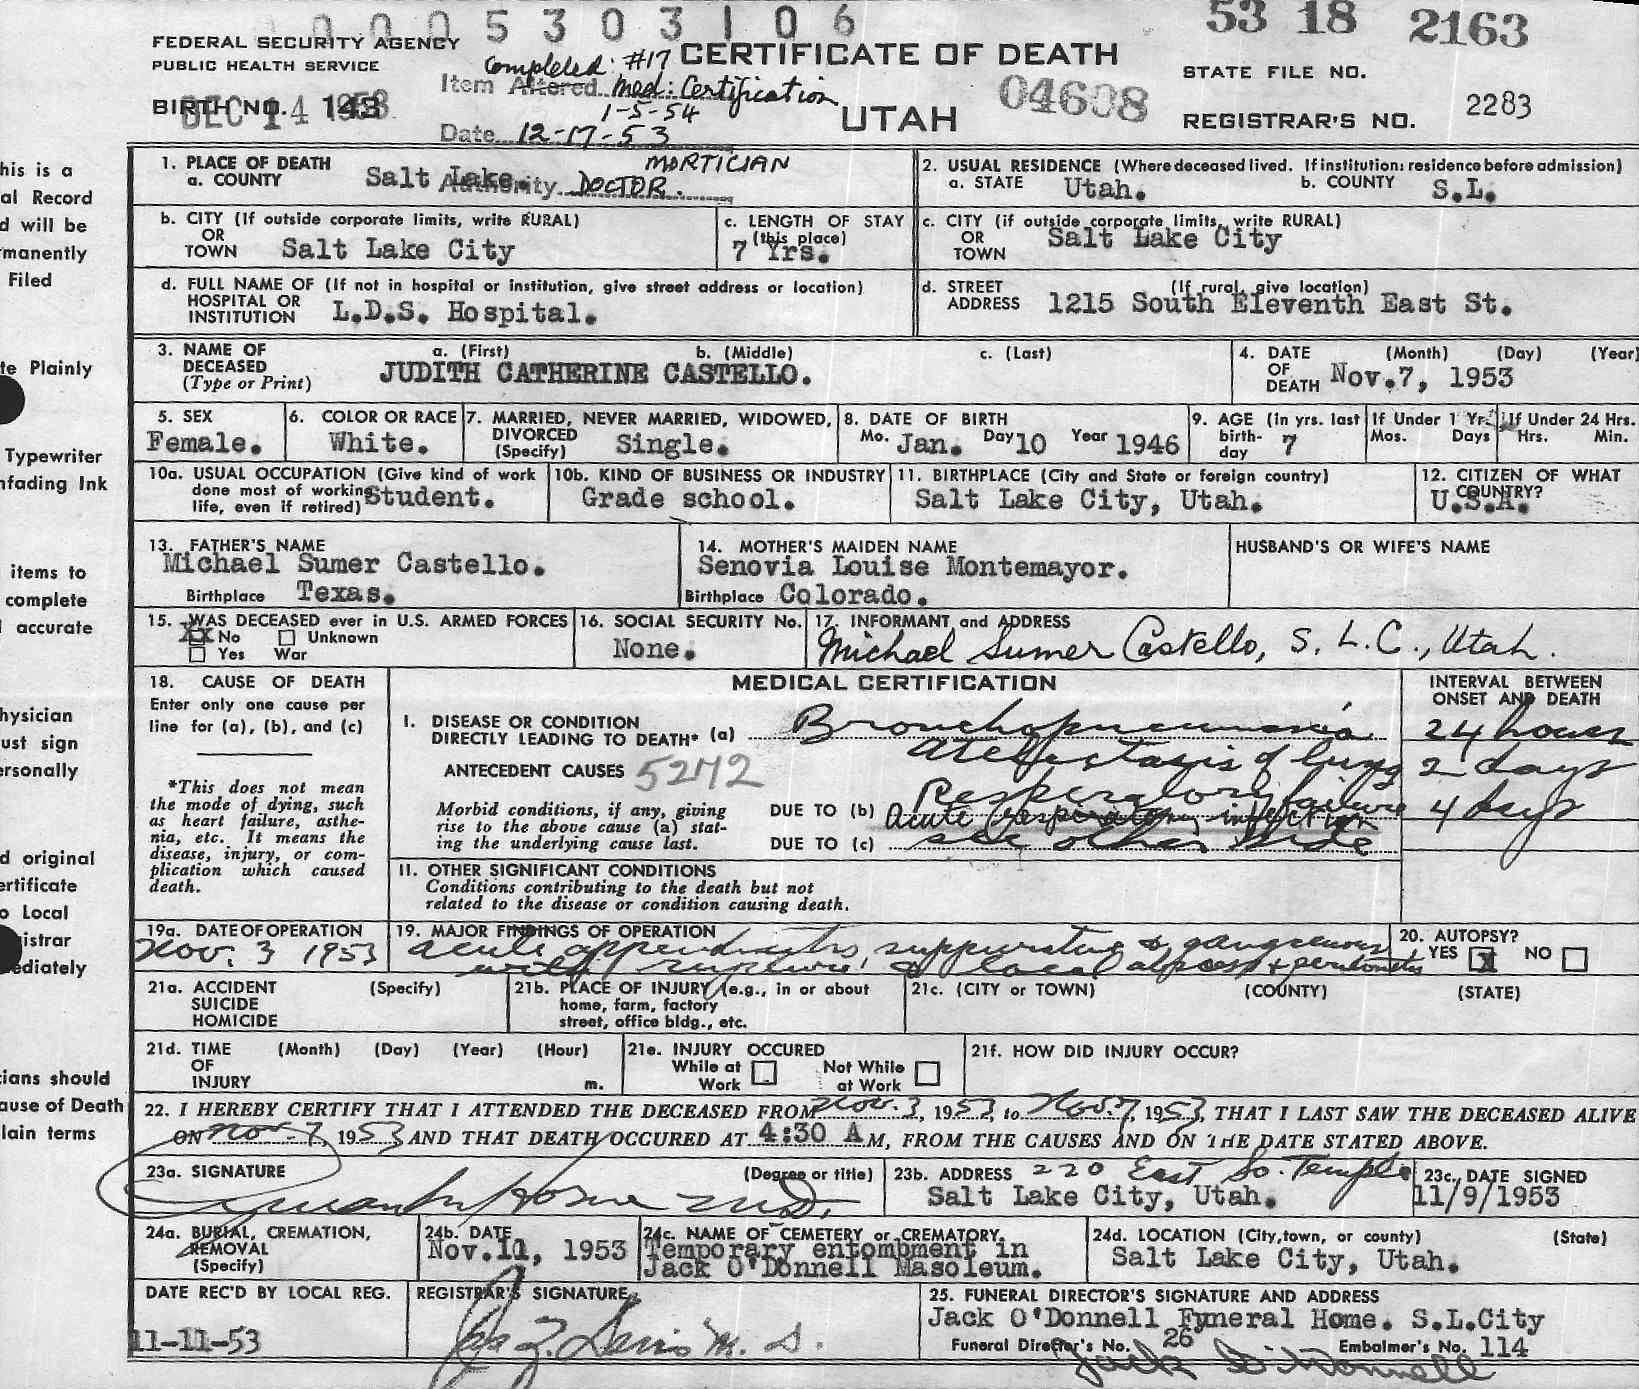 0005303106
53 18 2163
FEDERAL SECURITY AGENCY
PUBLIC HEALTH SERVICE
Completed: #17
CERTIFICATE OF DEATH
STATE FILE NO.
Item Altered Med: Certification
04608
BIRTH NO. 143
DEC 14 1953
1-5-54
UTAH
REGISTRAR'S NO. 2283
Date 12-17-53
MORTICIAN
Authority DOCTOR.
1. PLACE OF DEATH
a. COUNTY Salt Lake.
2. USUAL RESIDENCE (Where deceased lived. If institution: residence before admission)
a. STATE Utah. b. COUNTY S.L.
b. CITY (If outside corporate limits, write RURAL)
OR
TOWN Salt Lake City
c. LENGTH OF STAY
(this place)
7 Yrs.
c. CITY (if outside corporate limits, write RURAL)
OR
TOWN Salt Lake City
d. FULL NAME OF (If not in hospital or institution, give street address or location)
HOSPITAL OR
INSTITUTION L.D.S. Hospital.
d. STREET (If rural, give location)
ADDRESS 1215 South Eleventh East St.
3. NAME OF a. (First) b. (Middle) c. (Last)
DECEASED
(Type or Print) JUDITH CATHERINE CASTELLO.
4. DATE (Month) (Day) (Year)
OF
DEATH Nov.7, 1953
5. SEX
Female.
6. COLOR OR RACE
White.
7. MARRIED, NEVER MARRIED, WIDOWED,
DIVORCED
(Specify) Single.
8. DATE OF BIRTH
Mo. Jan. Day 10 Year 1946
9. AGE (in yrs. last
birth-
day 7
If Under 1 Yr.
Mos. Days
If Under 24 Hrs.
Hrs. Min.
10a. USUAL OCCUPATION (Give kind of work
done most of working
life, even if retired) Student.
10b. KIND OF BUSINESS OR INDUSTRY
Grade school.
11. BIRTHPLACE (City and State or foreign country)
Salt Lake City, Utah.
12. CITIZEN OF WHAT
COUNTRY?
U.S.A.
13. FATHER'S NAME
Michael Sumer Castello.
Birthplace Texas.
14. MOTHER'S MAIDEN NAME
Senovia Louise Montemayor.
Birthplace Colorado.
HUSBAND'S OR WIFE'S NAME
15. WAS DECEASED ever in U.S. ARMED FORCES
XX No Unknown
Yes War
16. SOCIAL SECURITY No.
None.
17. INFORMANT and ADDRESS
Michael Sumer Castello, S. L. C., Utah.
18. CAUSE OF DEATH
Enter only one cause per
line for (a), (b), and (c)
*This does not mean
the mode of dying, such
as heart failure, asthe-
nia, etc. It means the
disease, injury, or com-
plication which caused
death.
MEDICAL CERTIFICATION
INTERVAL BETWEEN
ONSET AND DEATH
I. DISEASE OR CONDITION
DIRECTLY LEADING TO DEATH* (a) Bronchopneumonia 24 hours
Atelectasis of lung 2 days
ANTECEDENT CAUSES 5272
Respiratory failure 4 days
Morbid conditions, if any, giving
rise to the above cause (a) stat-
ing the underlying cause last.
DUE TO (b) Acute Respiratory infection
DUE TO (c) see other side
II. OTHER SIGNIFICANT CONDITIONS
Conditions contributing to the death but not
related to the disease or condition causing death.
19a. DATE OF OPERATION
Nov. 3 1953
19. MAJOR FINDINGS OF OPERATION
acute appendicitis, suppurative & gangrenous
with rupture & local abscess & peritonitis
20. AUTOPSY?
YES X NO
21a. ACCIDENT (Specify)
SUICIDE
HOMICIDE
21b. PLACE OF INJURY (e.g., in or about
home, farm, factory
street, office bldg., etc.
21c. (CITY or TOWN) (COUNTY) (STATE)
21d. TIME (Month) (Day) (Year) (Hour)
OF
INJURY m.
21e. INJURY OCCURED
While at Not While
Work at Work
21f. HOW DID INJURY OCCUR?
22. I HEREBY CERTIFY THAT I ATTENDED THE DECEASED FROM Nov. 3, 1953, to Nov. 7, 1953, THAT I LAST SAW THE DECEASED ALIVE
ON Nov. 7, 1953 AND THAT DEATH OCCURED AT 4:30 A M, FROM THE CAUSES AND ON THE DATE STATED ABOVE.
23a. SIGNATURE (Degree or title)
M.D.
23b. ADDRESS 220 East So. Temple
Salt Lake City, Utah.
23c. DATE SIGNED
11/9/1953
24a. BURIAL, CREMATION,
REMOVAL
(Specify)
24b. DATE
Nov. 11, 1953
24c. NAME OF CEMETERY or CREMATORY.
Temporary entombment in
Jack O'Donnell Masoleum.
24d. LOCATION (City, town, or county) (State)
Salt Lake City, Utah.
DATE REC'D BY LOCAL REG.
11-11-53
REGISTRAR'S SIGNATURE
M. D.
25. FUNERAL DIRECTOR'S SIGNATURE AND ADDRESS
Jack O'Donnell Funeral Home. S.L.City
Funeral Director's No. 26 Embalmer's No. 114
Jack O'Donnell
his is a
al Record
d will be
manently
Filed
te Plainly
Typewriter
nfading Ink
items to
complete
accurate
hysician
ust sign
ersonally
d original
ertificate
o Local
istrar
ediately
cians should
ause of Death
lain terms